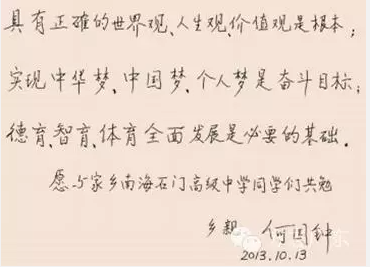 具有正确的世界观、人生观、价值观是根本；
实现中华梦、中国梦、个人梦是奋斗目标；
德育、智育、体育全面发展是必要的基础．
愿与家乡南海石门高级中学同学们共勉
乡亲 何国钟
2013.10.13